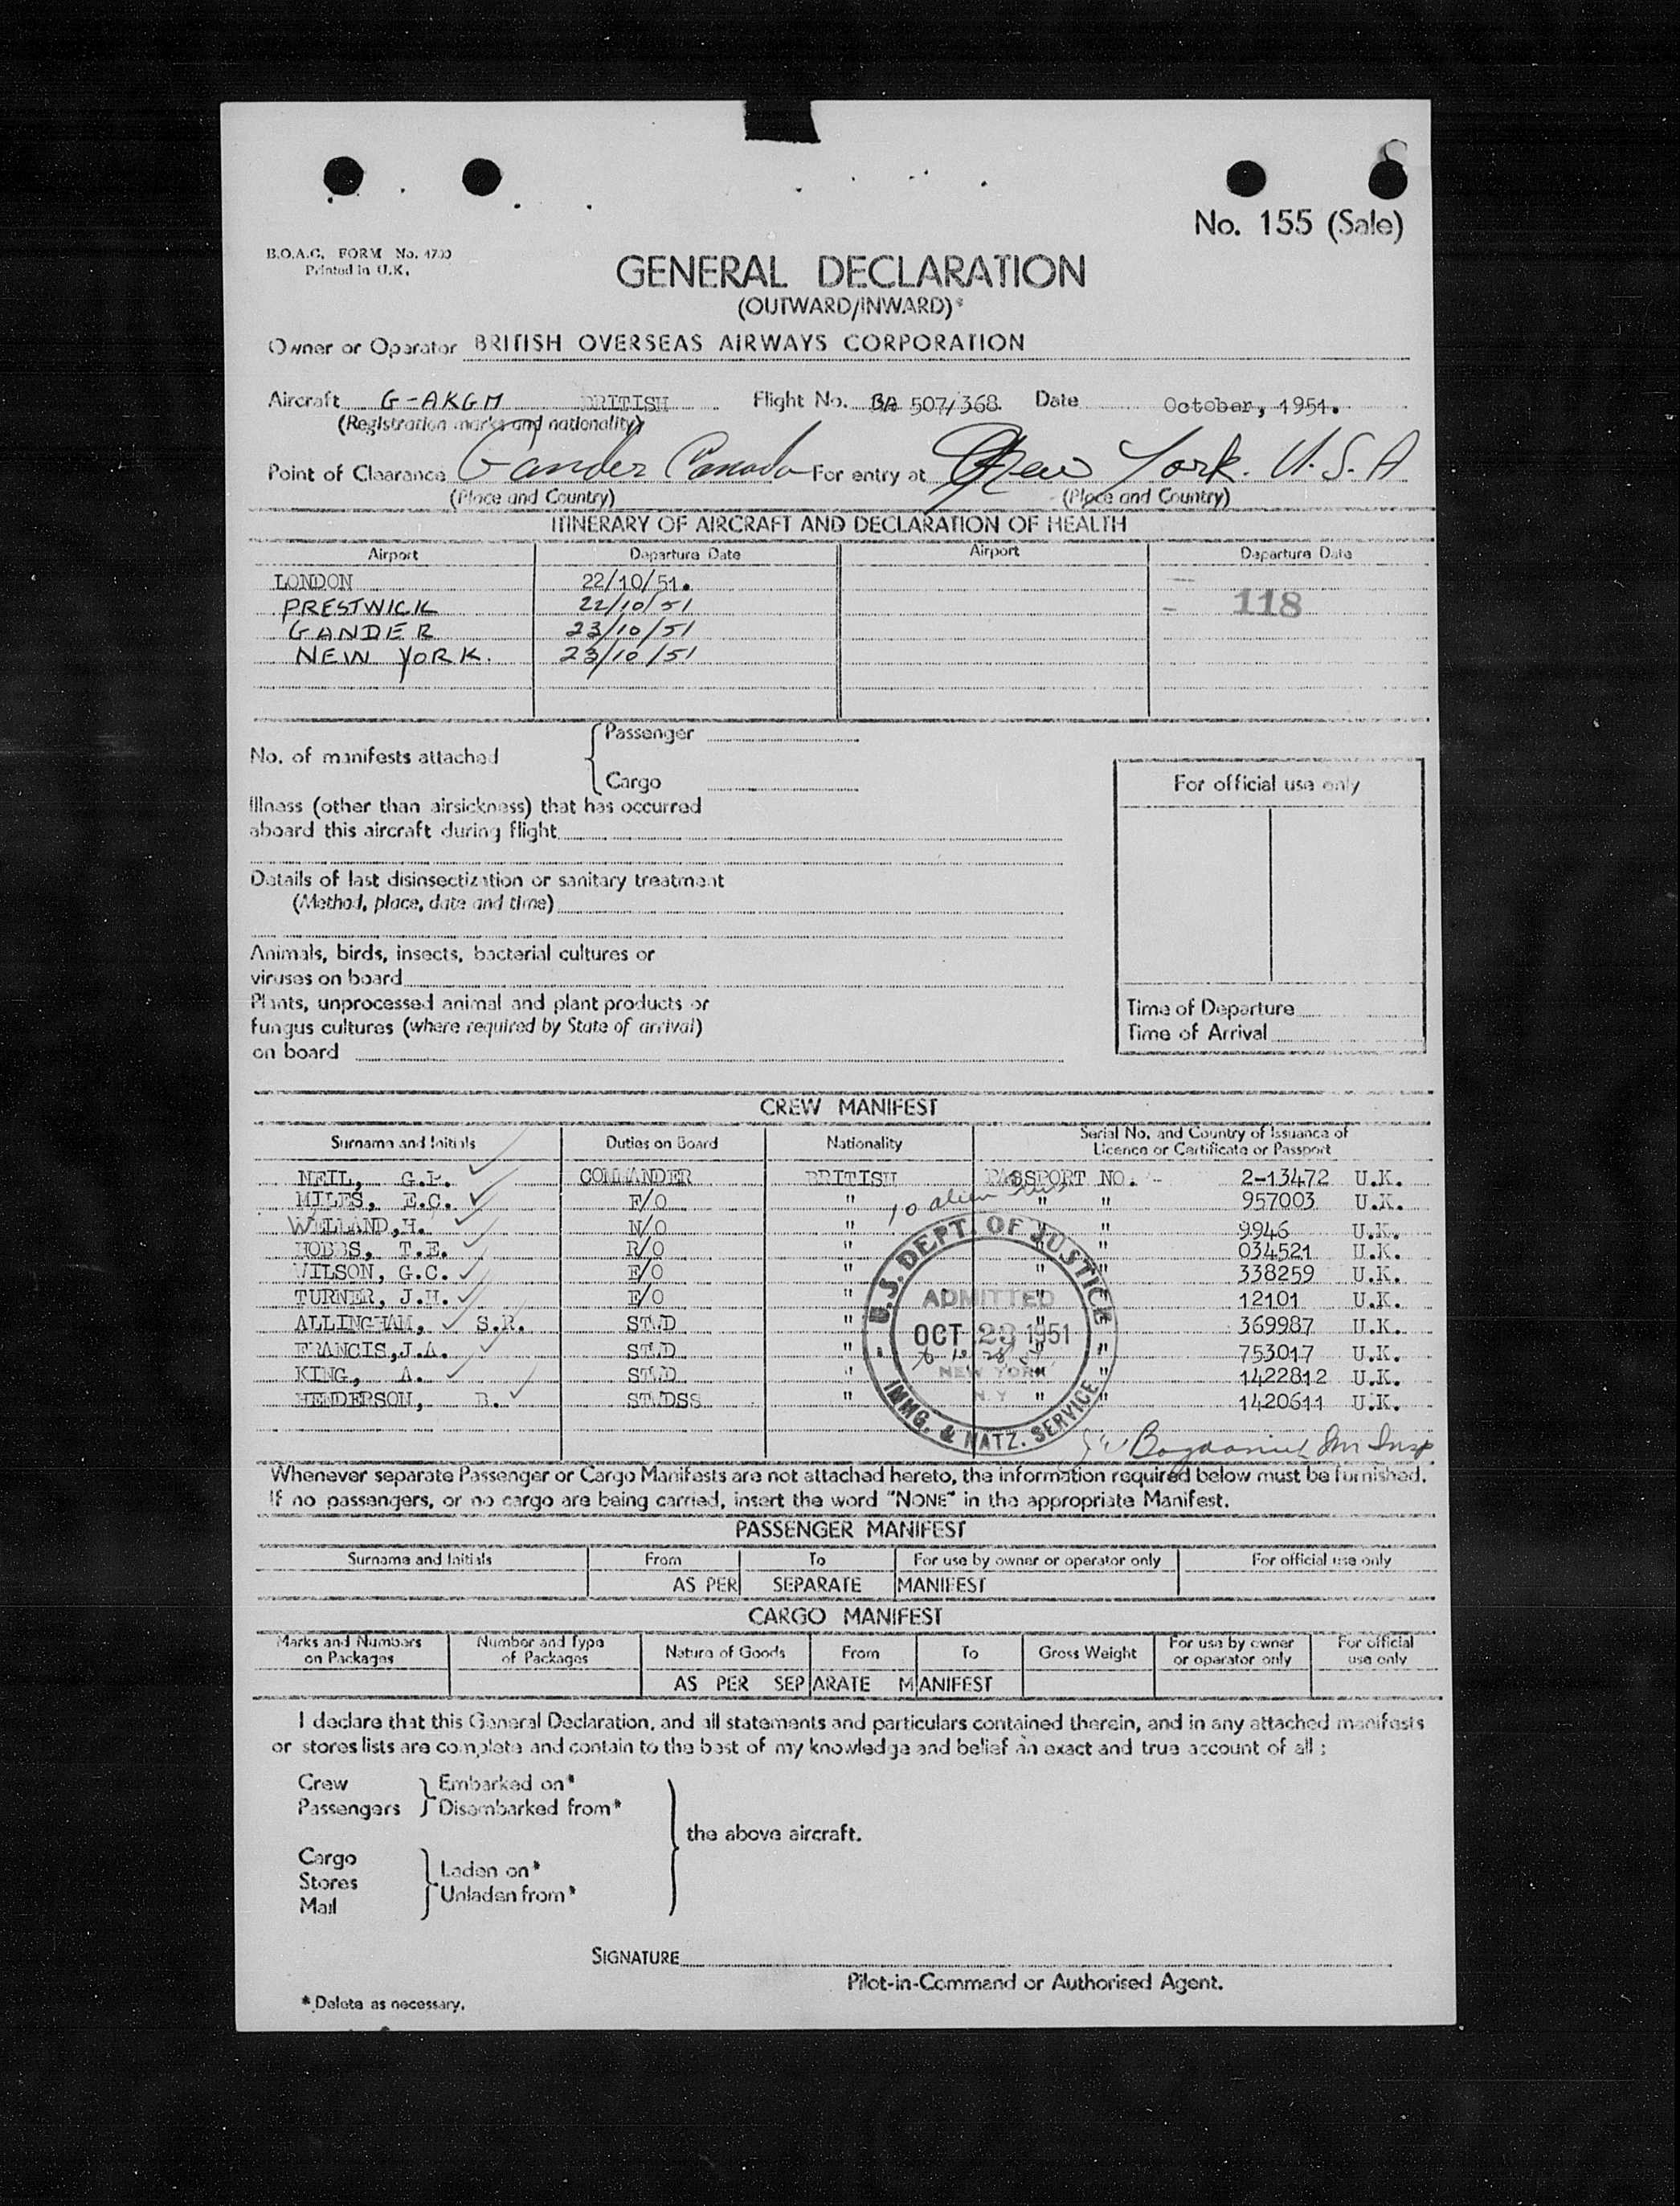 No. 155 (Sale)
B.O.A.C. FORM No. 4700
Printed in U.K.
GENERAL DECLARATION
(OUTWARD/INWARD)*
Owner or Operator BRITISH OVERSEAS AIRWAYS CORPORATION
Aircraft G-AKGM BRITISH Flight No. BA 507/368 Date October, 1951.
(Registration marks and nationality)
Point of Clearance Gander Canada For entry at New York. U.S.A
(Place and Country) (Place and Country)
ITINERARY OF AIRCRAFT AND DECLARATION OF HEALTH
Airport Departure Date Airport Departure Date
LONDON 22/10/51.
PRESTWICK 22/10/51 118
GANDER 23/10/51
NEW YORK. 23/10/51
No. of manifests attached
Passenger
Cargo
For official use only
Illness (other than airsickness) that has occurred
aboard this aircraft during flight
Details of last disinsectization or sanitary treatment
(Method, place, date and time)
Animals, birds, insects, bacterial cultures or
viruses on board
Plants, unprocessed animal and plant products or
fungus cultures (where required by State of arrival)
on board
Time of Departure
Time of Arrival
CREW MANIFEST
Surname and Initials Duties on Board Nationality Serial No. and Country of Issuance of
Licence or Certificate or Passport
NEIL, G.P. COMMANDER BRITISH PASSPORT NO. 2-13472 U.K.
MILES, E.C. F/O " " " 957003 U.K.
10 alien crew
WELLAND, H. N/O " " " 9946 U.K.
HOBBS, T.E. R/O " " " 034521 U.K.
WILSON, G.C. E/O " " 338259 U.K.
TURNER, J.H. E/O " " 12101 U.K.
ALLINGHAM, S.R. STWD " " 369987 U.K.
FRANCIS, J.A. STWD " " " 753017 U.K.
KING, A. STWD " " " 1422812 U.K.
HENDERSON, B. STWDSS " " " 1420611 U.K.
U.S. DEPT. OF JUSTICE
ADMITTED
OCT 23 1951
NEW YORK
N.Y.
IMMG. & NATZ. SERVICE
Imm Insp
Whenever separate Passenger or Cargo Manifests are not attached hereto, the information required below must be furnished.
If no passengers, or no cargo are being carried, insert the word "NONE" in the appropriate Manifest.
PASSENGER MANIFEST
Surname and Initials From To For use by owner or operator only For official use only
AS PER SEPARATE MANIFEST
CARGO MANIFEST
Marks and Numbers on Packages Number and Type of Packages Nature of Goods From To Gross Weight For use by owner or operator only For official use only
AS PER SEPARATE MANIFEST
I declare that this General Declaration, and all statements and particulars contained therein, and in any attached manifests
or stores lists are complete and contain to the best of my knowledge and belief an exact and true account of all :
Crew Embarked on*
Passengers Disembarked from*
the above aircraft.
Cargo
Stores
Mail
Laden on*
Unladen from*
SIGNATURE
Pilot-in-Command or Authorised Agent.
* Delete as necessary.